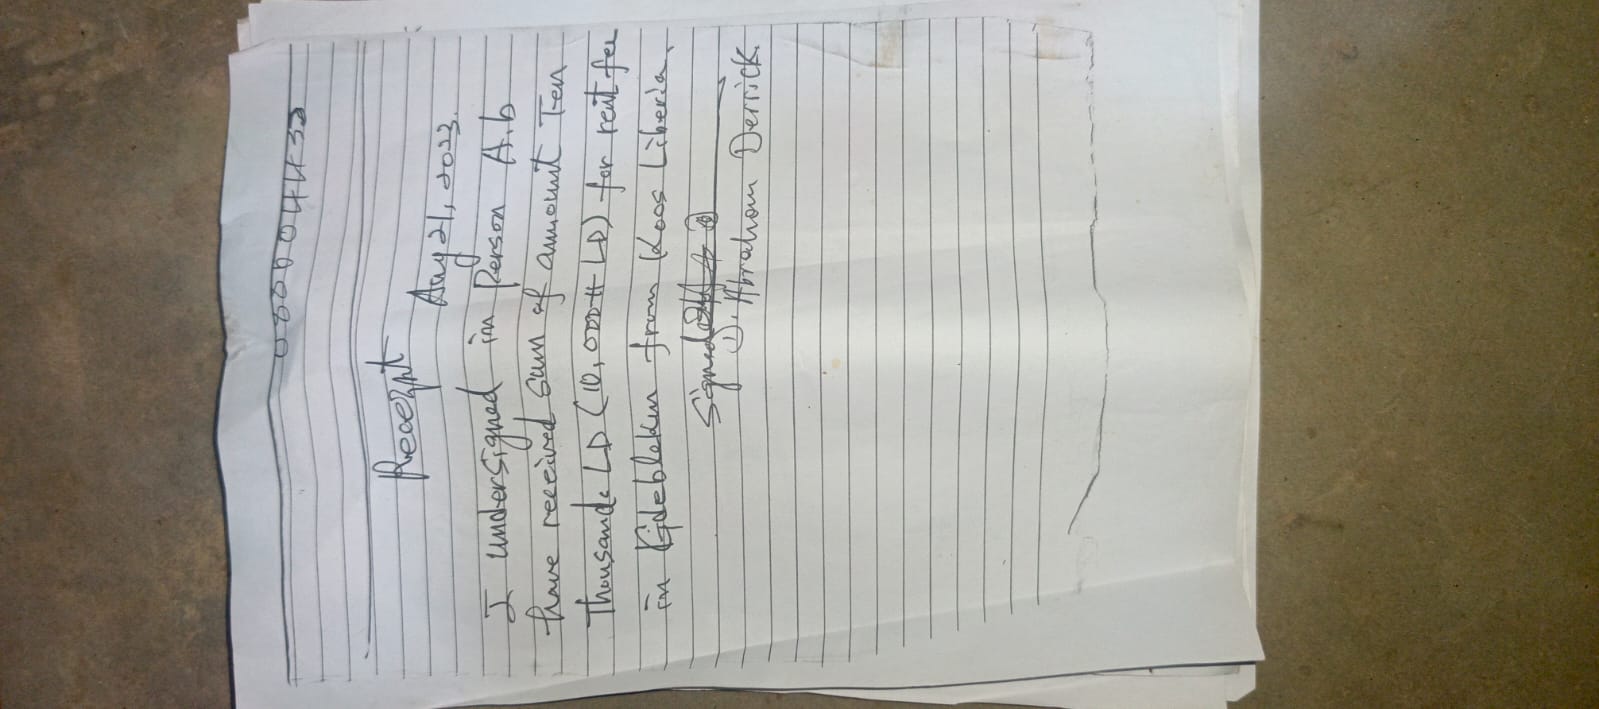 Receipt
Aug 21, 2023.
I undersigned in Person A.b
have received sum of ammount Ten
Thousand LD (10,000 LD) for rent fee
in from Koos Liberia.
Signed
D. Abraham Derrick